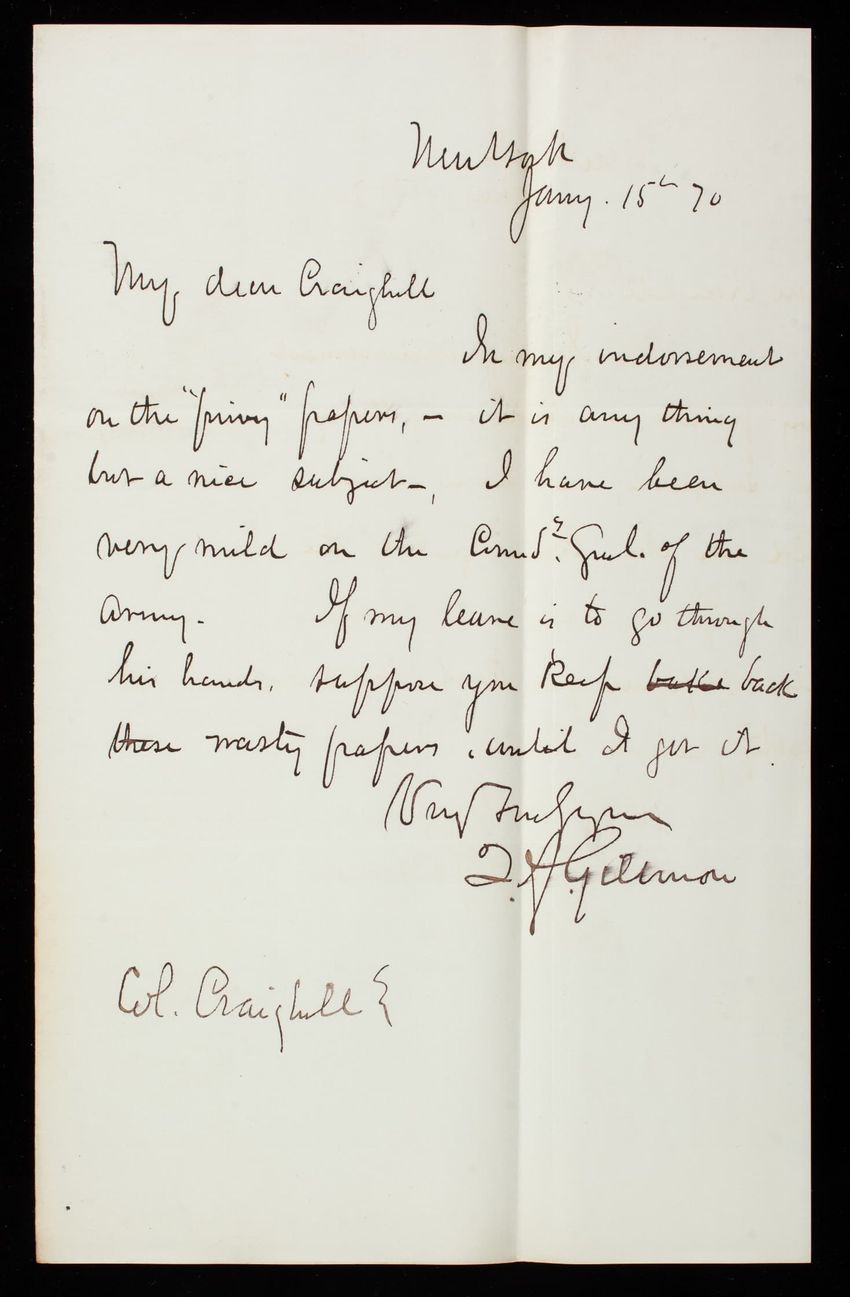 New York
Jany. 15th 70
My dear Craighill
In my indorsement
on the "privy" papers, – it is any thing
but a nice subject –, I have been
very mild on the Comdg. Genl. of the
Army. If my leave is to go through
his hands, suppose you keep back
these nasty papers, until I get it.
Very truly yours
Q. A. Gillmore
Col. Craighill